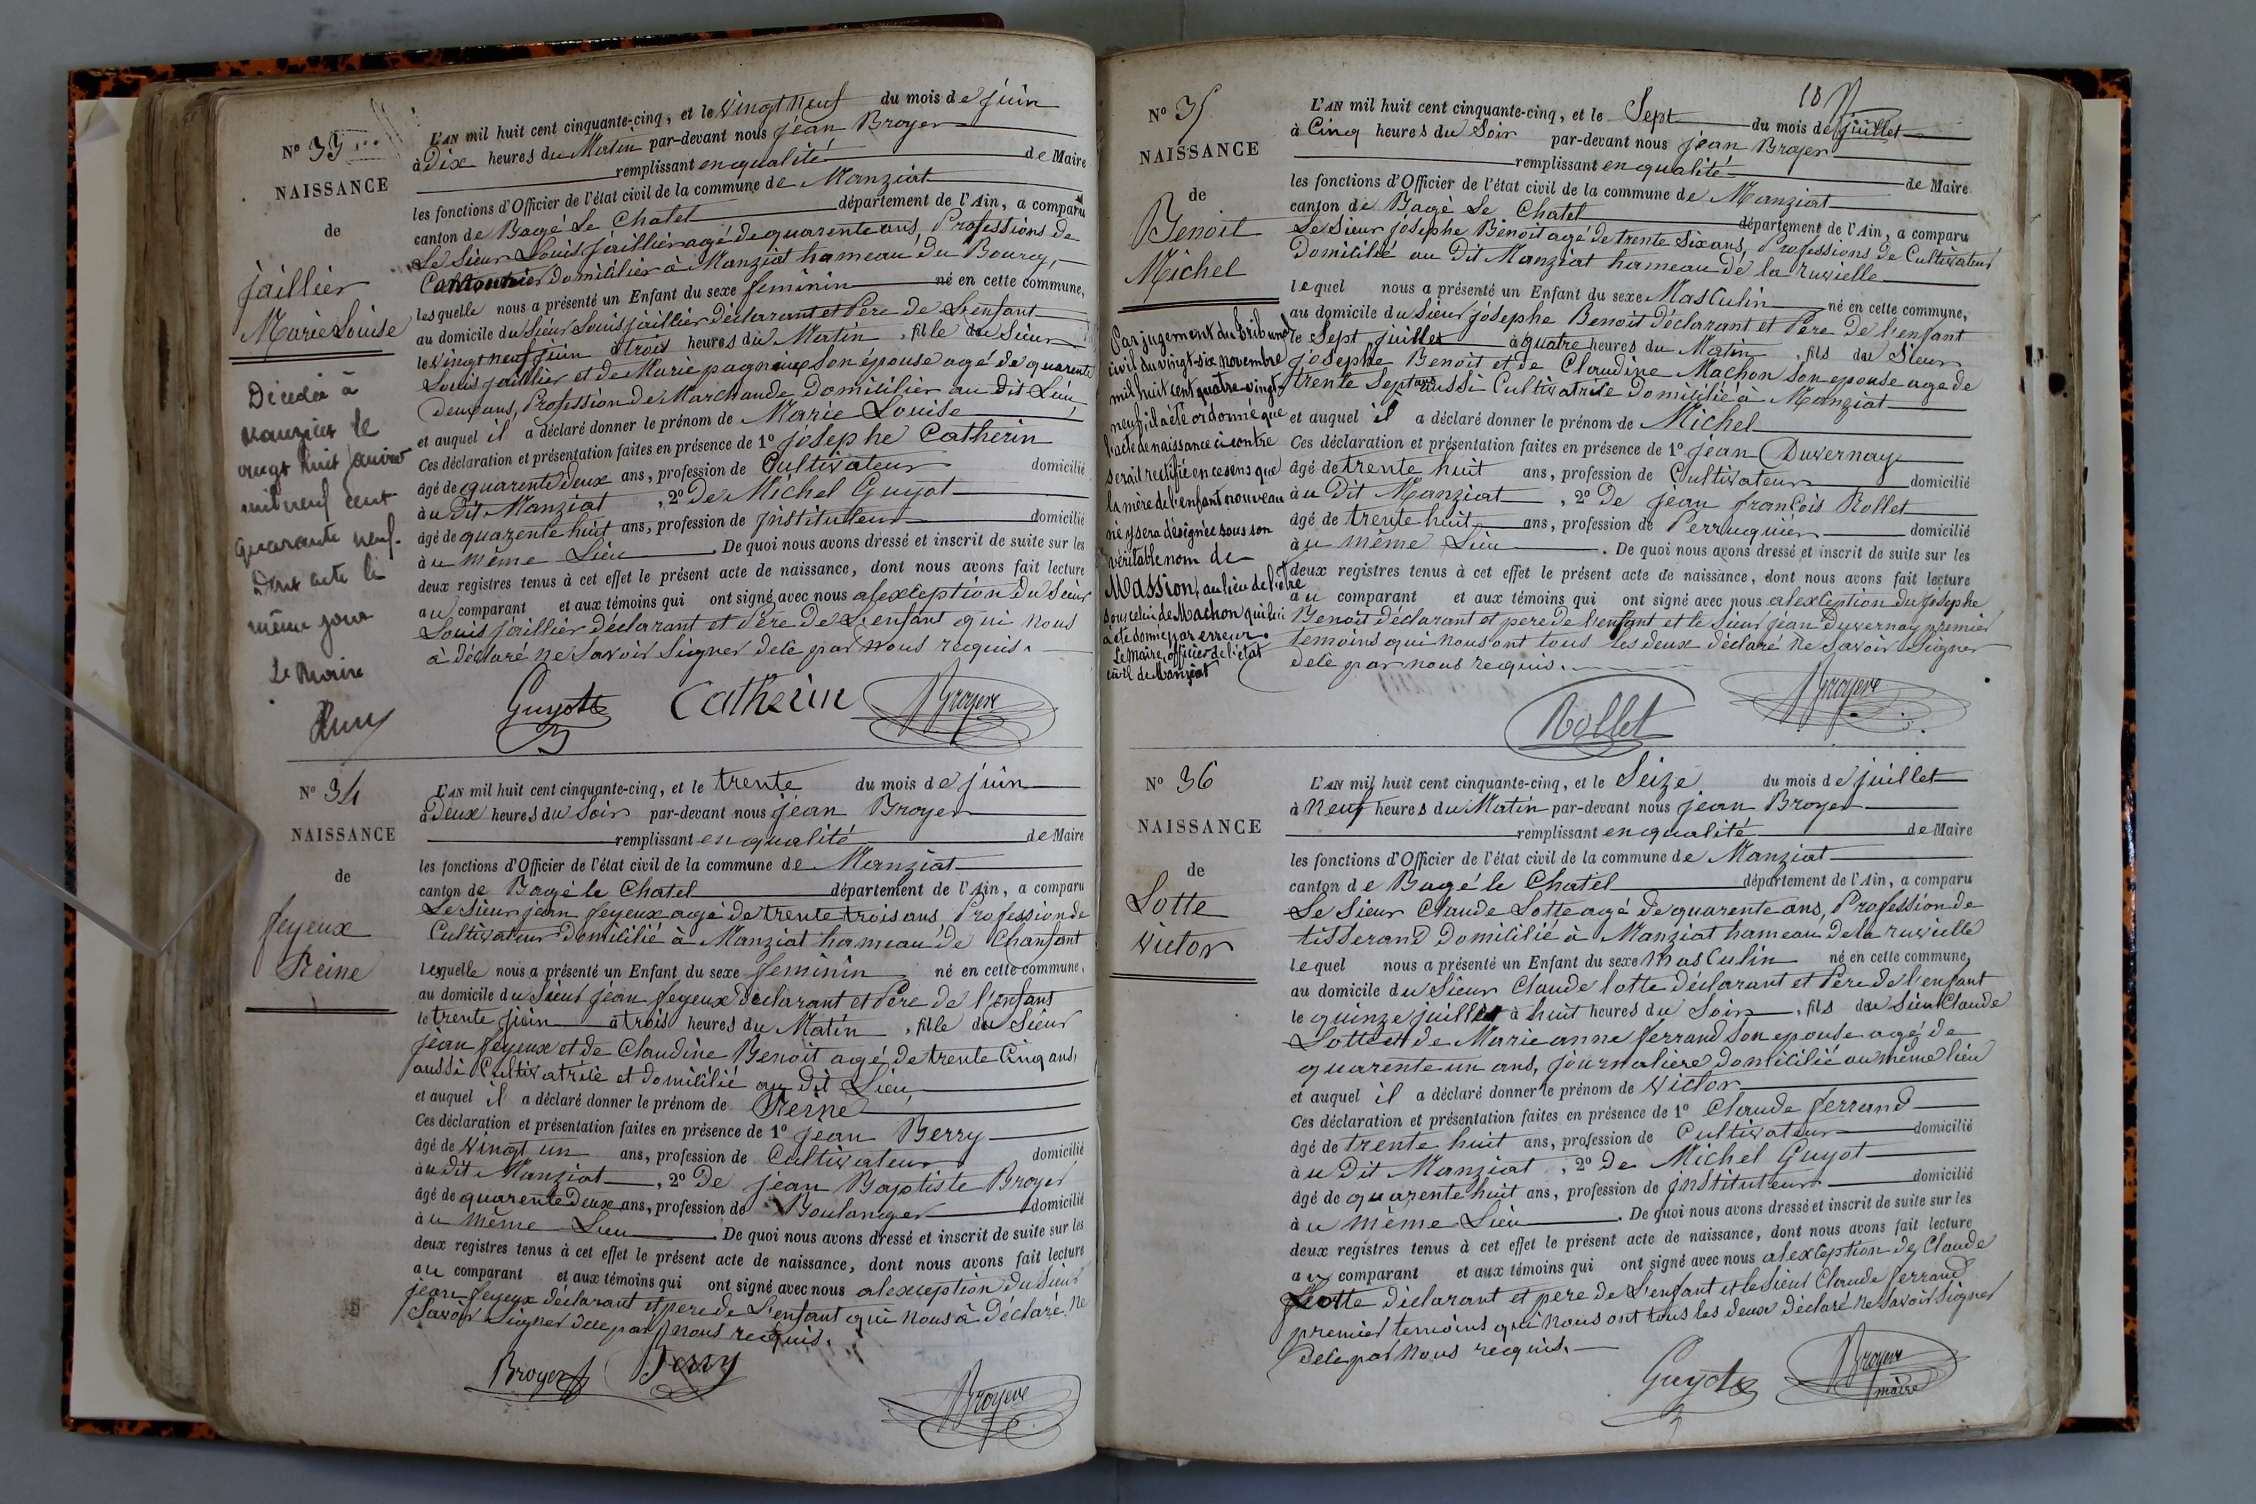 N° 33
NAISSANCE
de
Jaillier
Marie Louise
Décédée à
Manziat le
vingt huit janvier
mil neuf cent
quarante neuf.
Dont acte le
même jour
Le Maire
L'AN mil huit cent cinquante-cinq, et le vingt neuf du mois de juin
à Dix heures du Matin par-devant nous jean Broyer
remplissant en qualité de Maire
les fonctions d'Officier de l'état civil de la commune de Manziat
canton de Bagé Le Chatel département de l'Ain, a comparu
Le Sieur Louis jaillier agé de quarente ans, Professions de
Cantonnier domicilier à Manziat hameau du Bourg,
lesquelle nous a présenté un Enfant du sexe feminin né en cette commune,
au domicile du Sieur Louis jaillier déclarant et Père de L'enfant
le vingt neuf juin à trois heures du Matin, fille du Sieur
Louis jaillier et de Marie pagneux son épouse agé de quarente
Deux ans, Profession de Marchande Domicilier au dit Lieu,
et auquel il a déclaré donner le prénom de Marie Louise
Ces déclaration et présentation faites en présence de 1° josephe Catherin
âgé de quarente deux ans, profession de Cultivateur domicilié
à u dit Manziat, 2° De Michel Guyot
âgé de quarente huit ans, profession de jnstituteur domicilié
à u même Lieu. De quoi nous avons dressé et inscrit de suite sur les
deux registres tenus à cet effet le présent acte de naissance, dont nous avons fait lecture
au comparant et aux témoins qui ont signé avec nous alexception du Sieur
Louis jaillier déclarant et Père de L'enfant qui nous
à déclaré ne Savoir Signer dece par nous requis.
Guyot Catherin Broyer
N° 34
NAISSANCE
de
feyeux
Reine
L'AN mil huit cent cinquante-cinq, et le trente du mois de juin
à Deux heures du Soir par-devant nous jean Broyer
remplissant en qualité de Maire
les fonctions d'Officier de l'état civil de la commune de Manziat
canton de Bagé le Chatel département de l'Ain, a comparu
Le Sieur jean feyeux agé de trente trois ans, Profession de
Cultivateur Domicilié à Manziat hameau de Chanfant
lesquelle nous a présenté un Enfant du sexe feminin né en cette commune,
au domicile du Sieur jean feyeux déclarant et Père de l'enfant
le trente juin à trois heures du Matin, fille du Sieur
jean feyeux et de Claudine Benoit agé de trente Cinq ans,
aussi Cultivatrice et domicilié au dit Lieu,
et auquel il a déclaré donner le prénom de Reine
Ces déclaration et présentation faites en présence de 1° jean Berry
âgé de vingt un ans, profession de Cultivateur domicilié
à u dit Manziat, 2° De jean Baptiste Broyer
âgé de quarente Deux ans, profession de Boulanger domicilié
à u même Lieu. De quoi nous avons dressé et inscrit de suite sur les
deux registres tenus à cet effet le présent acte de naissance, dont nous avons fait lecture
au comparant et aux témoins qui ont signé avec nous alexception du Sieur
jean feyeux déclarant et pere de L'enfant qui nous à déclaré ne
Savoir Signer dece par nous requis.
Broyer Berry
Broyer
10
N° 35
NAISSANCE
de
Benoit
Michel
Par jugement du tribunal
civil du vingt-six novembre
mil huit cent quatre-vingt-
neuf, il a été ordonné que
l'acte de naissance ci contre
serait rectifié en ce sens que
la mère de l'enfant nouveau
né y sera désignée sous son
véritable nom de
Massion, au lieu de l'être
sous celui de Machon qui lui
a été donné par erreur.
Le Maire, officier de l'état
civil de Manziat
L'AN mil huit cent cinquante-cinq, et le Sept du mois de juillet
à Cinq heures du Soir par-devant nous jean Broyer
remplissant en qualité de Maire
les fonctions d'Officier de l'état civil de la commune de Manziat
canton de Bagé Le Chatel département de l'Ain, a comparu
Le Sieur jósephe Benoit agé de trente Six ans, Professions de Cultivateur
Domicilié au Dit Manziat hameau de la ruvielle
lequel nous a présenté un Enfant du sexe Masculin né en cette commune,
au domicile du Sieur jósephe Benoit déclarant et Père de l'enfant
le Sept juillet à quatre heures du Matin, fils du Sieur
josephe Benoit et de Claudine Machon Son epouse age de
trente Sept ans aussi Cultivatrice Domicilié à Manziat
et auquel il a déclaré donner le prénom de Michel
Ces déclaration et présentation faites en présence de 1° jean Duvernay
âgé de trente huit ans, profession de Cultivateur domicilié
à u Dit Manziat, 2° De jean françois Rollet
âgé de trente huit ans, profession de Perruquier domicilié
à u même Lieu. De quoi nous avons dressé et inscrit de suite sur les
deux registres tenus à cet effet le présent acte de naissance, dont nous avons fait lecture
au comparant et aux témoins qui ont signé avec nous alexception du josephe
Benoit déclarant et pere de l'enfant et le Sieur jean duvernay premier
temoins qui nous ont tous les deux déclaré ne Savoir Signer
dece par nous requis.
Rollet Broyer
N° 36
NAISSANCE
de
Lotte
victor
L'AN mil huit cent cinquante-cinq, et le Seize du mois de juillet
à Neuf heures du Matin par-devant nous jean Broyer
remplissant en qualité de Maire
les fonctions d'Officier de l'état civil de la commune de Manziat
canton de Bagé le Chatel département de l'Ain, a comparu
Le Sieur Claude Lotte agé de quarente ans, Profession de
tisserand Domicilié à Manziat hameau de la ruvielle
lequel nous a présenté un Enfant du sexe Masculin né en cette commune,
au domicile du Sieur Claude lotte déclarant et Père de l'enfant
le quinze juillet à huit heures du Soir, fils du Sieur Claude
Lotte et de Marie anne ferrand Son epouse agé de
quarente un ans, journaliere domicilié au même lieu
et auquel il a déclaré donner le prénom de victor
Ces déclaration et présentation faites en présence de 1° Claude ferrand
âgé de trente huit ans, profession de Cultivateur domicilié
à u Dit Manziat, 2° De Michel Guyot
âgé de quarente huit ans, profession de jnstituteur domicilié
à u même Lieu. De quoi nous avons dressé et inscrit de suite sur les
deux registres tenus à cet effet le présent acte de naissance, dont nous avons fait lecture
au comparant et aux témoins qui ont signé avec nous alexception de Claude
Lotte déclarant et pere de L'enfant et le Sieur Claude ferrand
premier temoins qui nous ont tous les deux déclaré ne Savoir Signer
dece par nous requis.
Guyot Broyer
maire